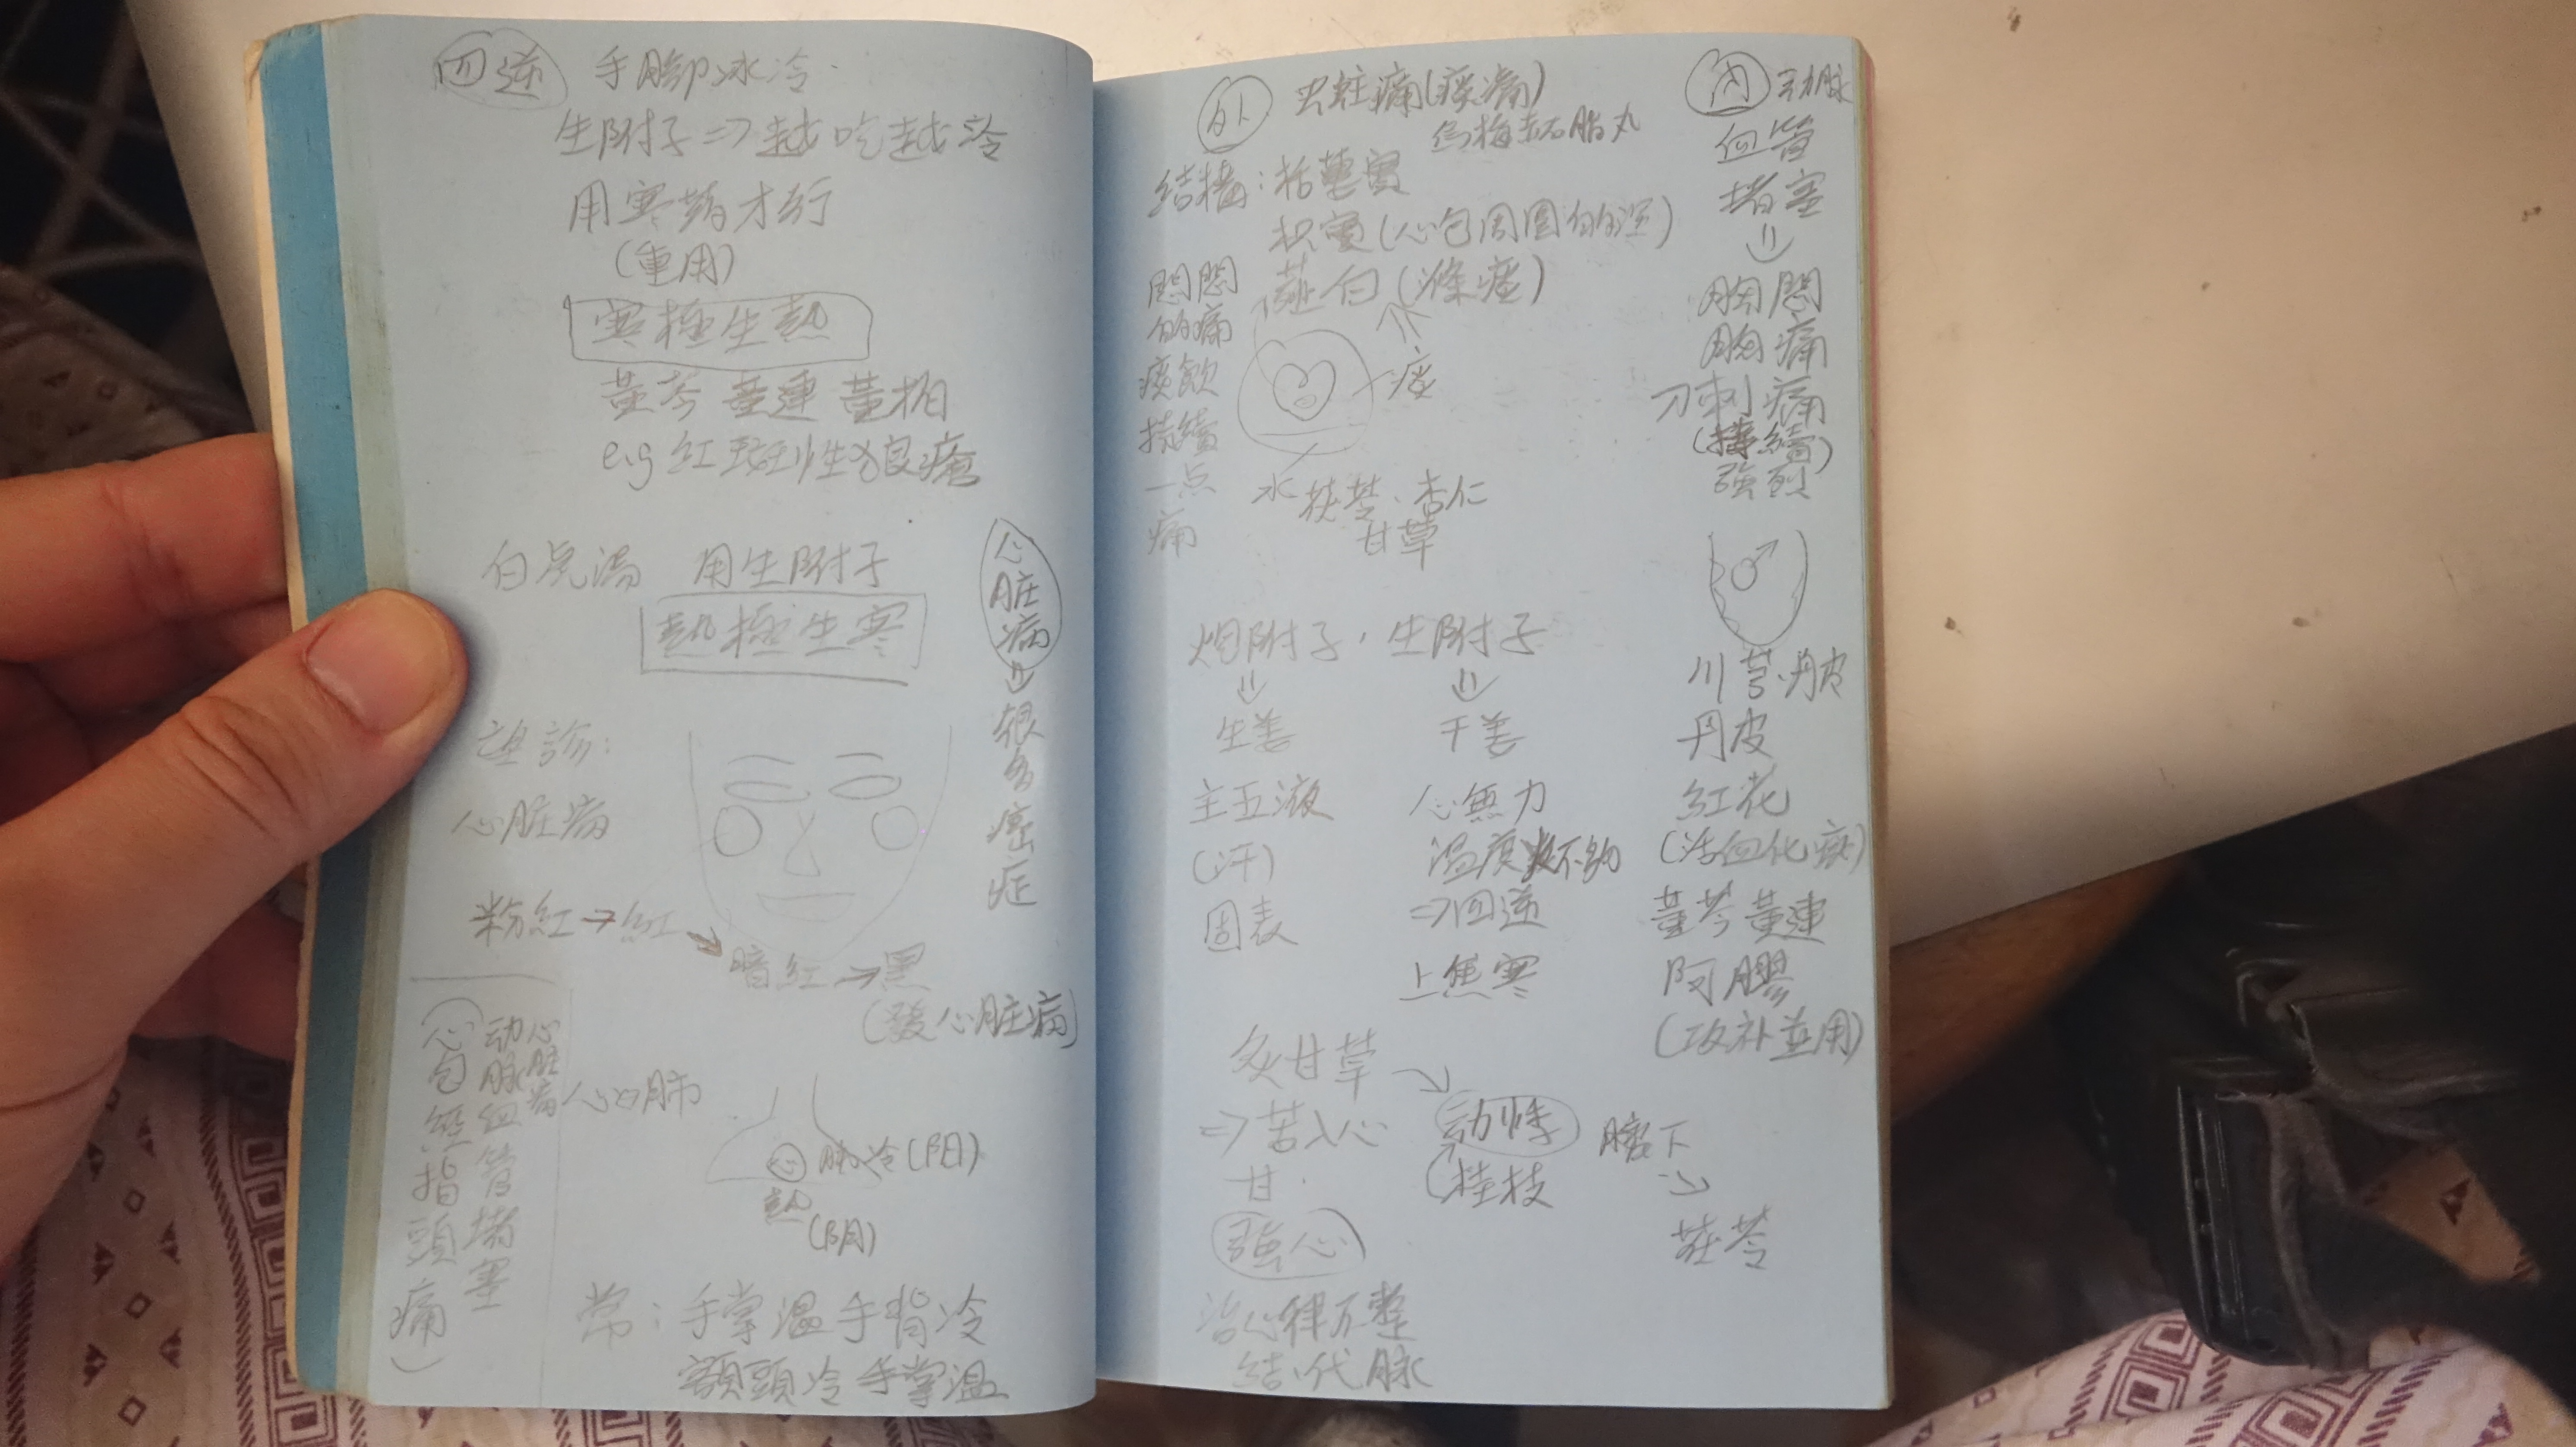 四逆 手腳冰冷.
生附子⇒越吃越冷
用寒藥才行
(重用)
寒極生熱
黃芩 黃連 黃柏
e.g 紅斑性狼瘡
白虎湯 用生附子
熱極生寒
心脏病
⇒
很多癌症
望診:
心脏病
粉紅→紅
→暗紅→黑
(發心脏病)
心脏病
动脉血管堵塞
(心包經指頭痛)
心肺
心 肺冷(陽)
熱
(陰)
常:手掌温手背冷
額頭冷手掌温
外 虫蛀痛(痰痛)
烏梅赤石脂丸
結構:括蔞實
枳實(心包周圍的湿)
薤白(滌痰)
悶悶的痛
痰飲
持續一点痛
痰
水 茯苓.杏仁
甘草
炮附子,生附子
⇒ ⇒
生姜 干姜
主五液 心無力
(汗) 温度不夠
固表 ⇒四逆
上焦寒
炙甘草→
⇒苦入心 动悸 臍下
甘. (桂枝 →
強心 茯苓
治心律不整
結.代脉
内 动脉
血管
堵塞
⇒
胸悶
胸痛
刀刺痛
(持續)
強烈
川芎.丹皮
丹皮
紅花
(活血化瘀)
黃芩黃連
阿膠
(攻補並用)